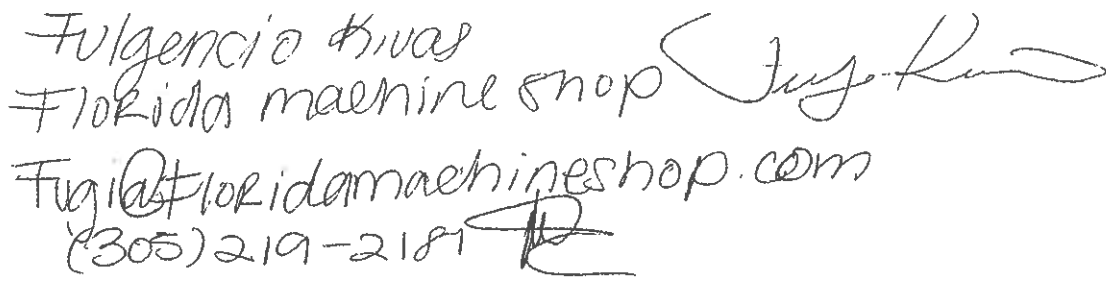 Fulgencio Rivas
Florida machine shop
Fugi@Floridamachineshop.com
(305) 219-2181